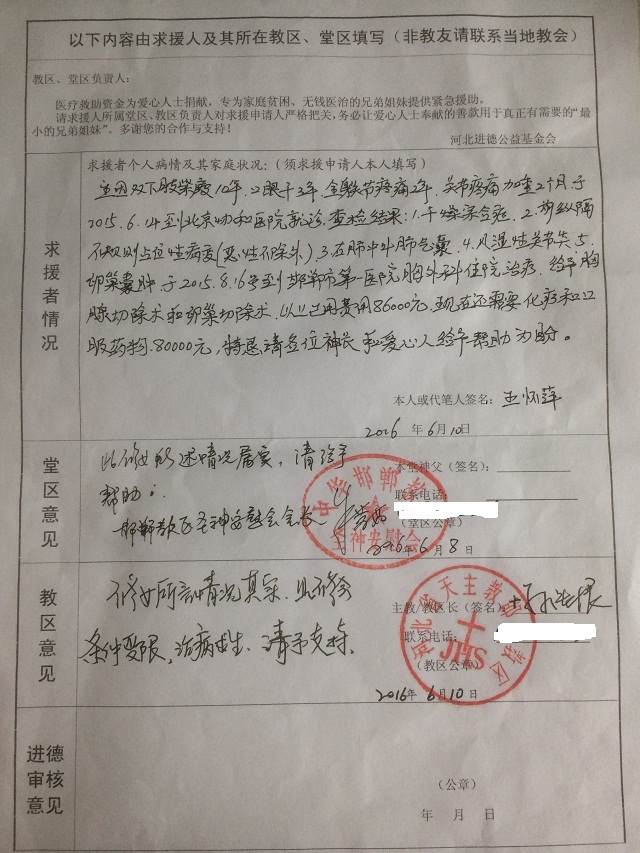 以下内容由求援人及其所在教区、堂区填写（非教友请联系当地教会）
教区、堂区负责人：
医疗救助资金为爱心人士捐献，专为家庭贫困、无钱医治的兄弟姐妹提供紧急援助。
请求援人所属堂区、教区负责人对求援申请人严格把关，务必让爱心人士奉献的善款用于真正有需要的“最
小的兄弟姐妹”。多谢您的合作与支持！
河北进德公益基金会
求援者情况
求援者个人病情及其家庭状况：（须求援申请人本人填写）
主因双下肢紫癜10年，口眼干3年，全身关节疼痛2年，关节疼痛加重2个月于
2015.6.14至到北京协和医院就诊，查验结果：1.干燥综合症，2.前纵隔
不规则占位性病变（恶性不除外），3.左肺中外肺气囊，4.风湿性关节炎，5.
卵巢囊肿，于2015.8.16号至到邯郸市第一医院胸外科住院治疗，给予胸
腺切除术和卵巢切除术，以上已用费用86000元，现在还需要化疗和口
服药物80000元，特恳请各位神长和爱心人给予帮助为盼。
本人或代笔人签名：王怀萍
2016年6月10日
堂区意见
此修女所述情况属实，请给予
帮助！
邯郸教区圣神安慰会会长
本堂神父（签名）：
联系电话：
（堂区公章）
2016年6月8日
圣神安慰会
教区意见
修女所言情况真实，此修会
条件受限，治病求生，请予支持。
主教/教区长（签名）：
联系电话：
（教区公章）
2016年6月10日
河北省天主教邯郸教区
JHS
进德审核意见
（公章）
年 月 日